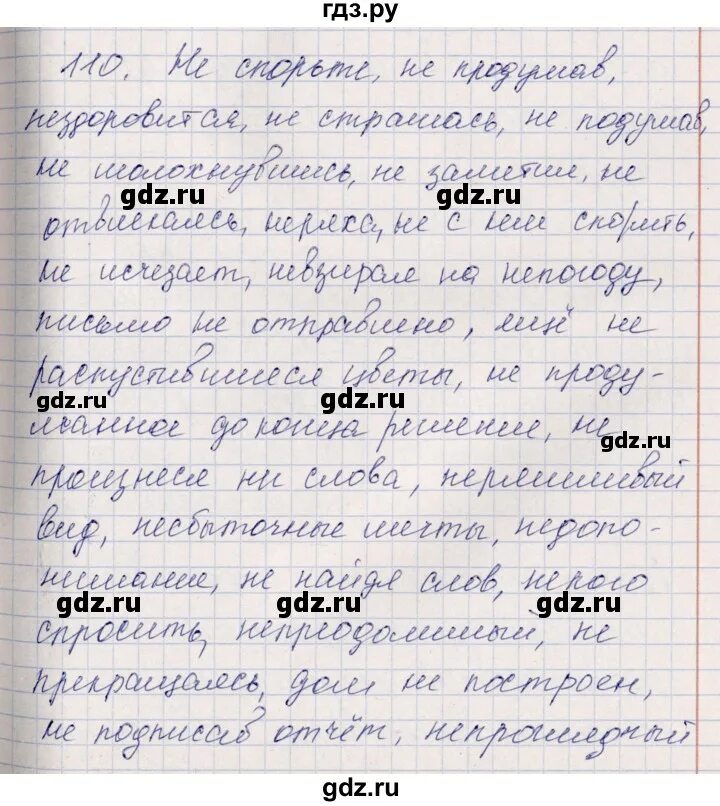 гдз.ру
110. Не спорьте, не продумав,
нездоровится, не страшась, не подумав,
не шолохнувшись, не заметил, не
gdz.ru gdz.ru
отвлекаясь, неряха, не с кем спорить,
не исчезает, невзирая на непогоду,
письмо не отправлено, ещё не
распустившиеся цветы, не проду-
gdz.ru gdz.ru
манное до конца решение, не
gdz.ru
произнеся ни слова, неряшливый
вид, несбыточные мечты, недопо-
нимание, не найдя слов, некого
gdz.ru gdz.ru gdz.ru
спросить, непреодолимый, не
прекращаясь, дом не построен,
не подписав отчёт, непроглядный
gdz.ru gdz.ru
gdz.ru